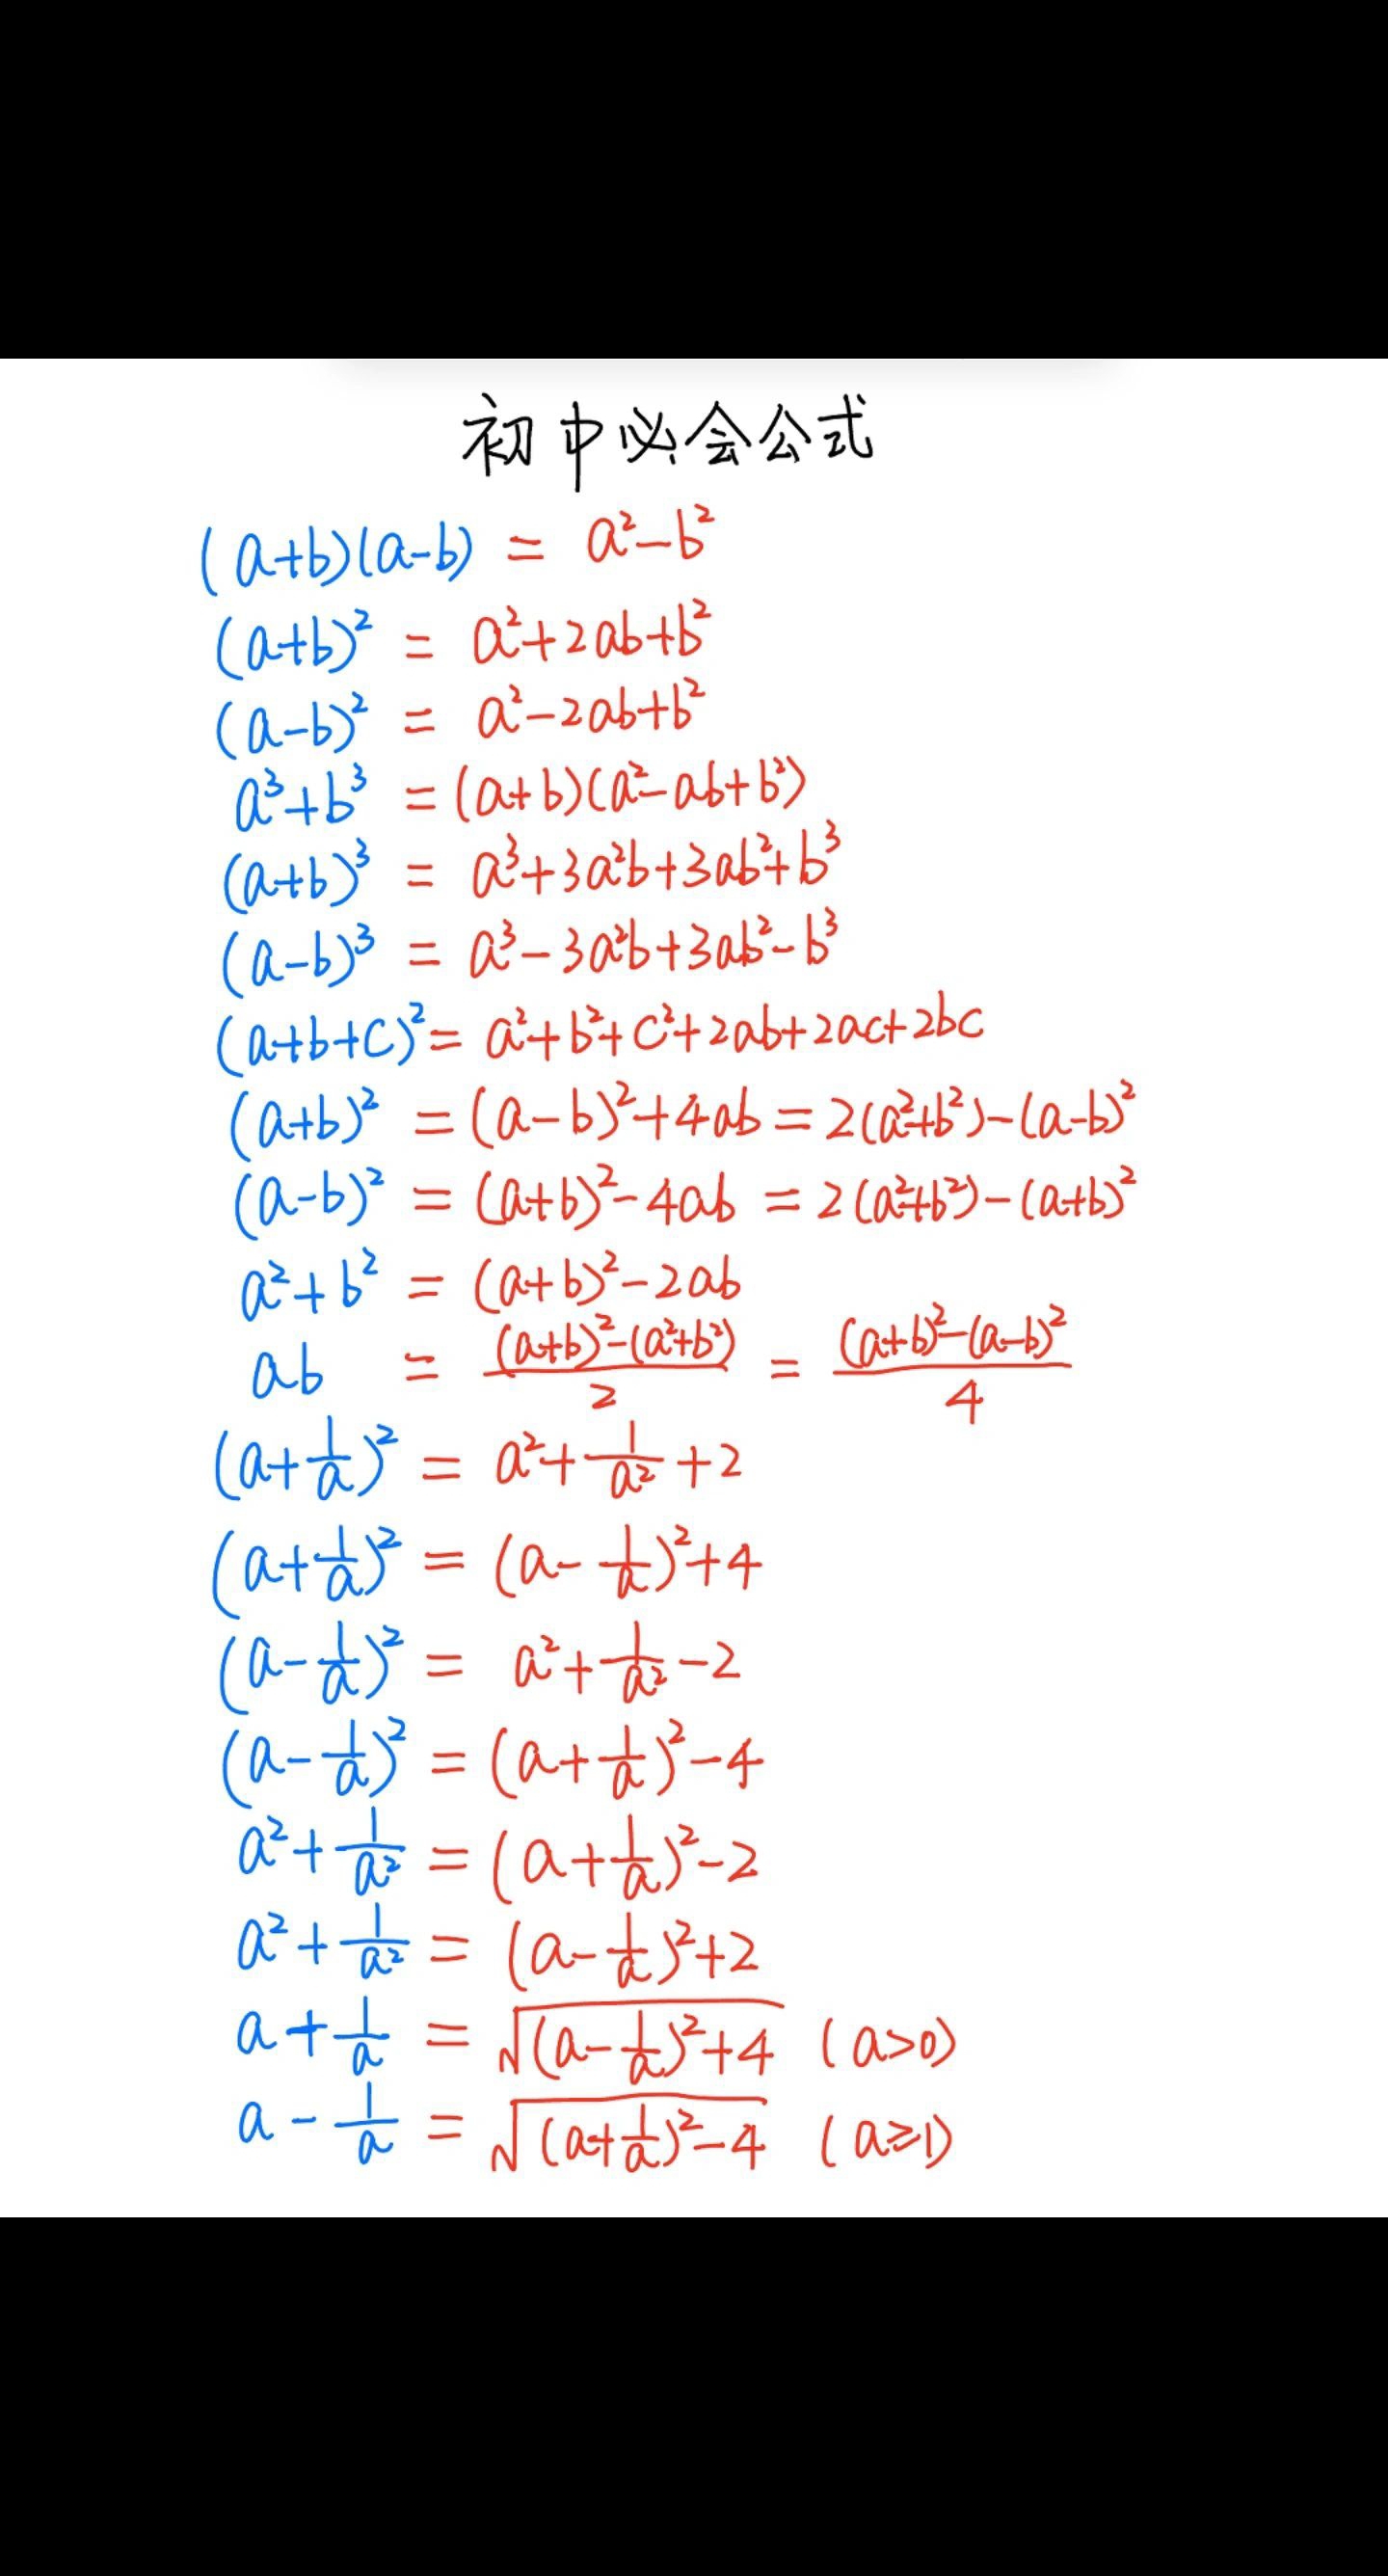 初中必会公式
(a+b)(a-b) = a²-b²
(a+b)² = a²+2ab+b²
(a-b)² = a²-2ab+b²
a³+b³ = (a+b)(a²-ab+b²)
(a+b)³ = a³+3a²b+3ab²+b³
(a-b)³ = a³-3a²b+3ab²-b³
(a+b+c)² = a²+b²+c²+2ab+2ac+2bc
(a+b)² = (a-b)²+4ab = 2(a²+b²)-(a-b)²
(a-b)² = (a+b)²-4ab = 2(a²+b²)-(a+b)²
a²+b² = (a+b)²-2ab
ab = \frac{(a+b)²-(a²+b²)}{2} = \frac{(a+b)²-(a-b)²}{4}
(a+\frac{1}{a})² = a²+\frac{1}{a²}+2
(a+\frac{1}{a})² = (a-\frac{1}{a})²+4
(a-\frac{1}{a})² = a²+\frac{1}{a²}-2
(a-\frac{1}{a})² = (a+\frac{1}{a})²-4
a²+\frac{1}{a²} = (a+\frac{1}{a})²-2
a²+\frac{1}{a²} = (a-\frac{1}{a})²+2
a+\frac{1}{a} = \sqrt{(a-\frac{1}{a})²+4} (a>0)
a-\frac{1}{a} = \sqrt{(a+\frac{1}{a})²-4} (a≥1)